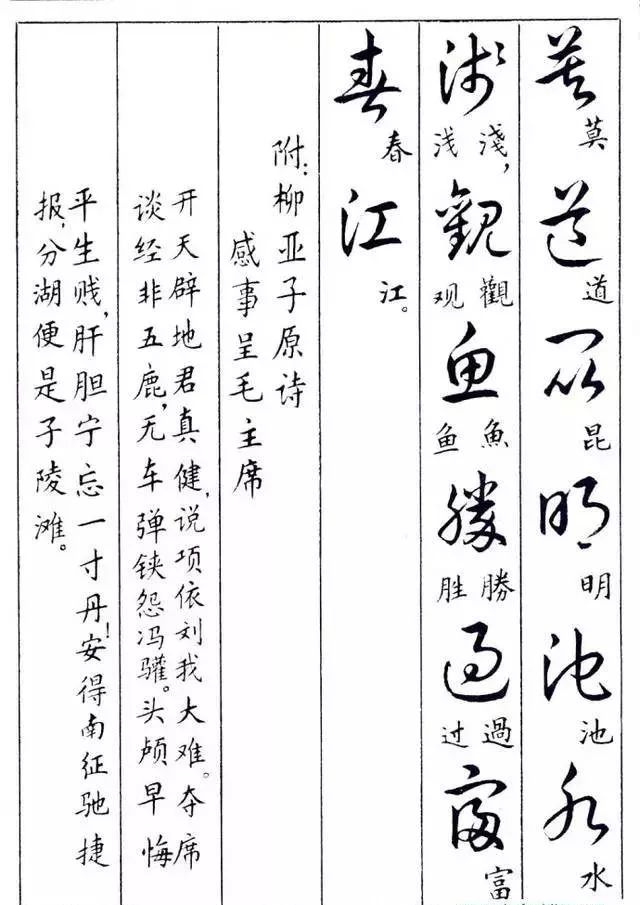 莫道昆明池水
莫道昆明池水
淺觀魚勝過富
淺,觀魚勝過富
浅观鱼胜过
春江
春江。
附:柳亚子原诗
感事呈毛主席
开天辟地君真健,说项依刘我大难。夺席
谈经非五鹿,无车弹铗怨冯驩。头颅早悔
平生贱,肝胆宁忘一寸丹!安得南征驰捷
报,分湖便是子陵滩。